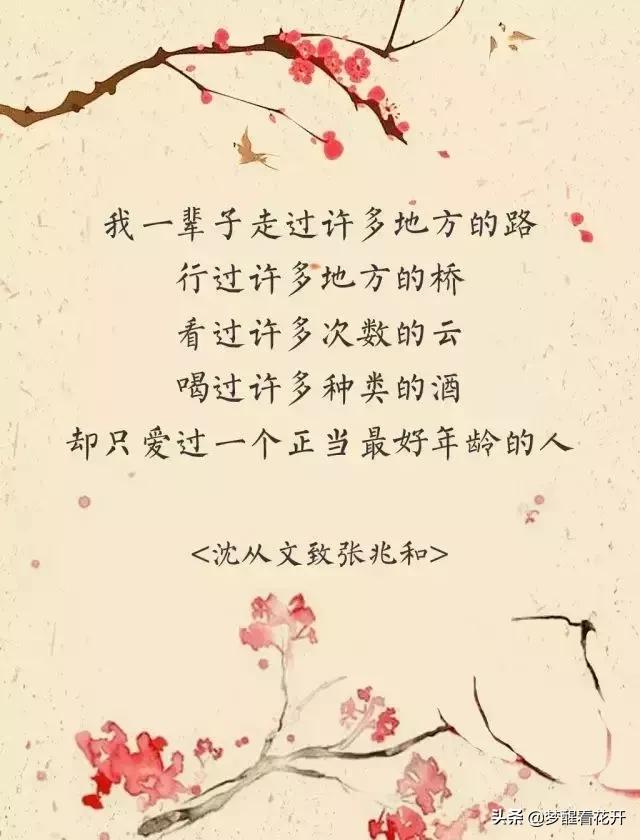 我一辈子走过许多地方的路
行过许多地方的桥
看过许多次数的云
喝过许多种类的酒
却只爱过一个正当最好年龄的人
<沈从文致张兆和>
头条 @梦醒看花开